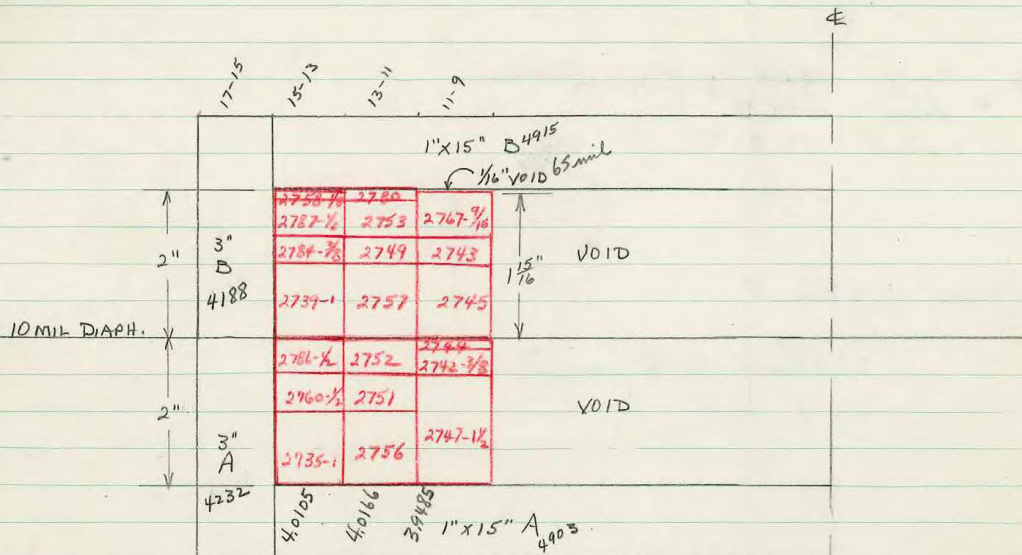 ℄
17-15 15-13 13-11 11-9
1"X15" B 4915
1/16" VOID 65 mil
2758-1/8 2780
2787-1/2 2753 2767-9/16
2784-3/8 2749 2743
2739-1 2757 2745
2"
3"
B
4188
1 15/16"
VOID
10 MIL DIAPH.
2744
2786-1/2 2752 2742-3/8
2760-1/2 2751
2735-1 2756 2747-1 1/2
2"
3"
A
4232
VOID
4.0105 4.0166 3.9485
1"X15" A 4903